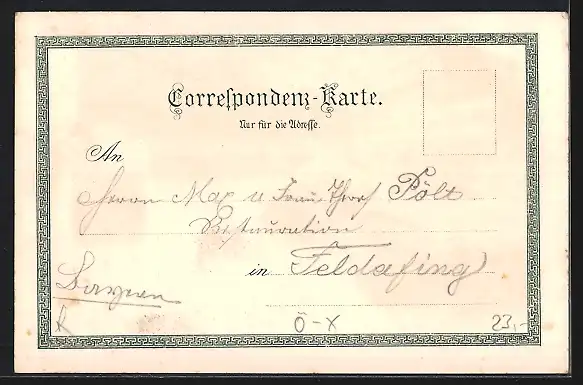 Correspondenz-Karte.
Nur für die Adresse.
An
Herrn Max u Frau Pölt
Restauration
in Feldafing
Bayern
Ö-X
23,-